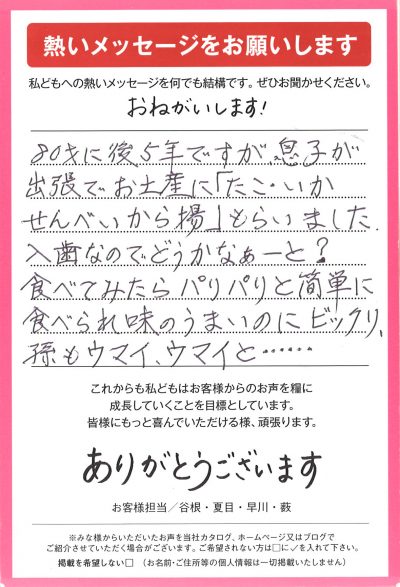 熱いメッセージをお願いします
私どもへの熱いメッセージを何でも結構です。ぜひお聞かせください。
おねがいします!
80才に後5年ですが、息子が
出張でお土産に「たこ・いか
せんべいから揚」もらいました.
入歯なのでどうかなぁーと?
食べてみたらパリパリと簡単に
食べられ味のうまいのにビックリ、
孫もウマイ、ウマイと……
これからも私どもはお客様からのお声を糧に
成長していくことを目標としています。
皆様にもっと喜んでいただける様、頑張ります。
ありがとうございます
お客様担当/谷根・夏目・早川・薮
※みな様からいただいたお声を当社カタログ、ホームページ又はブログで
ご紹介させていただく場合がございます。ご希望されない方は□に✓を入れて下さい。
掲載を希望しない□ (お名前・ご住所等の個人情報は一切掲載いたしません)